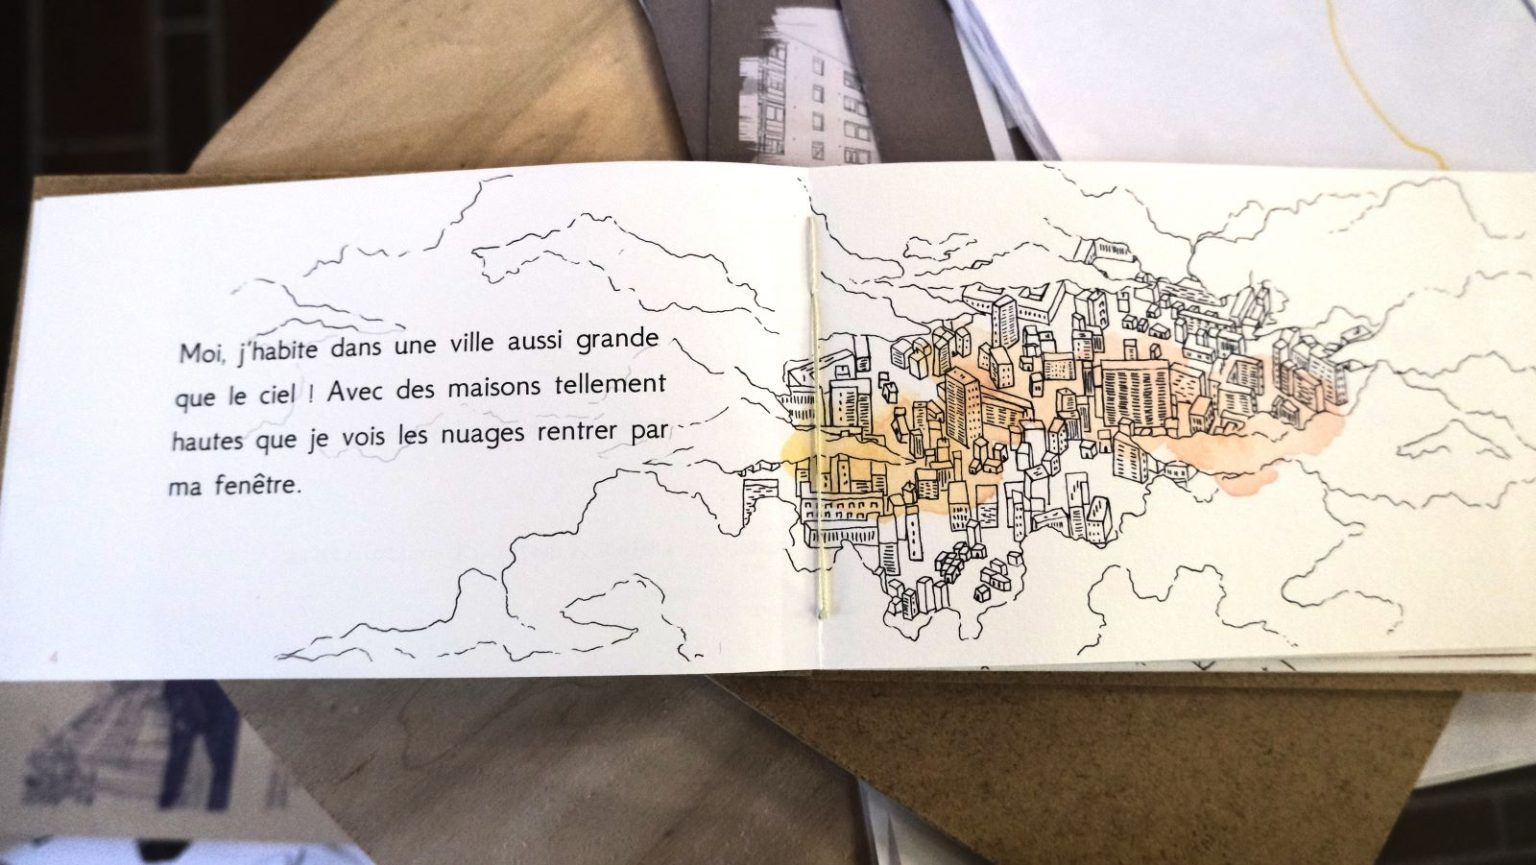 Moi, j'habite dans une ville aussi grande
que le ciel ! Avec des maisons tellement
hautes que je vois les nuages rentrer par
ma fenêtre.